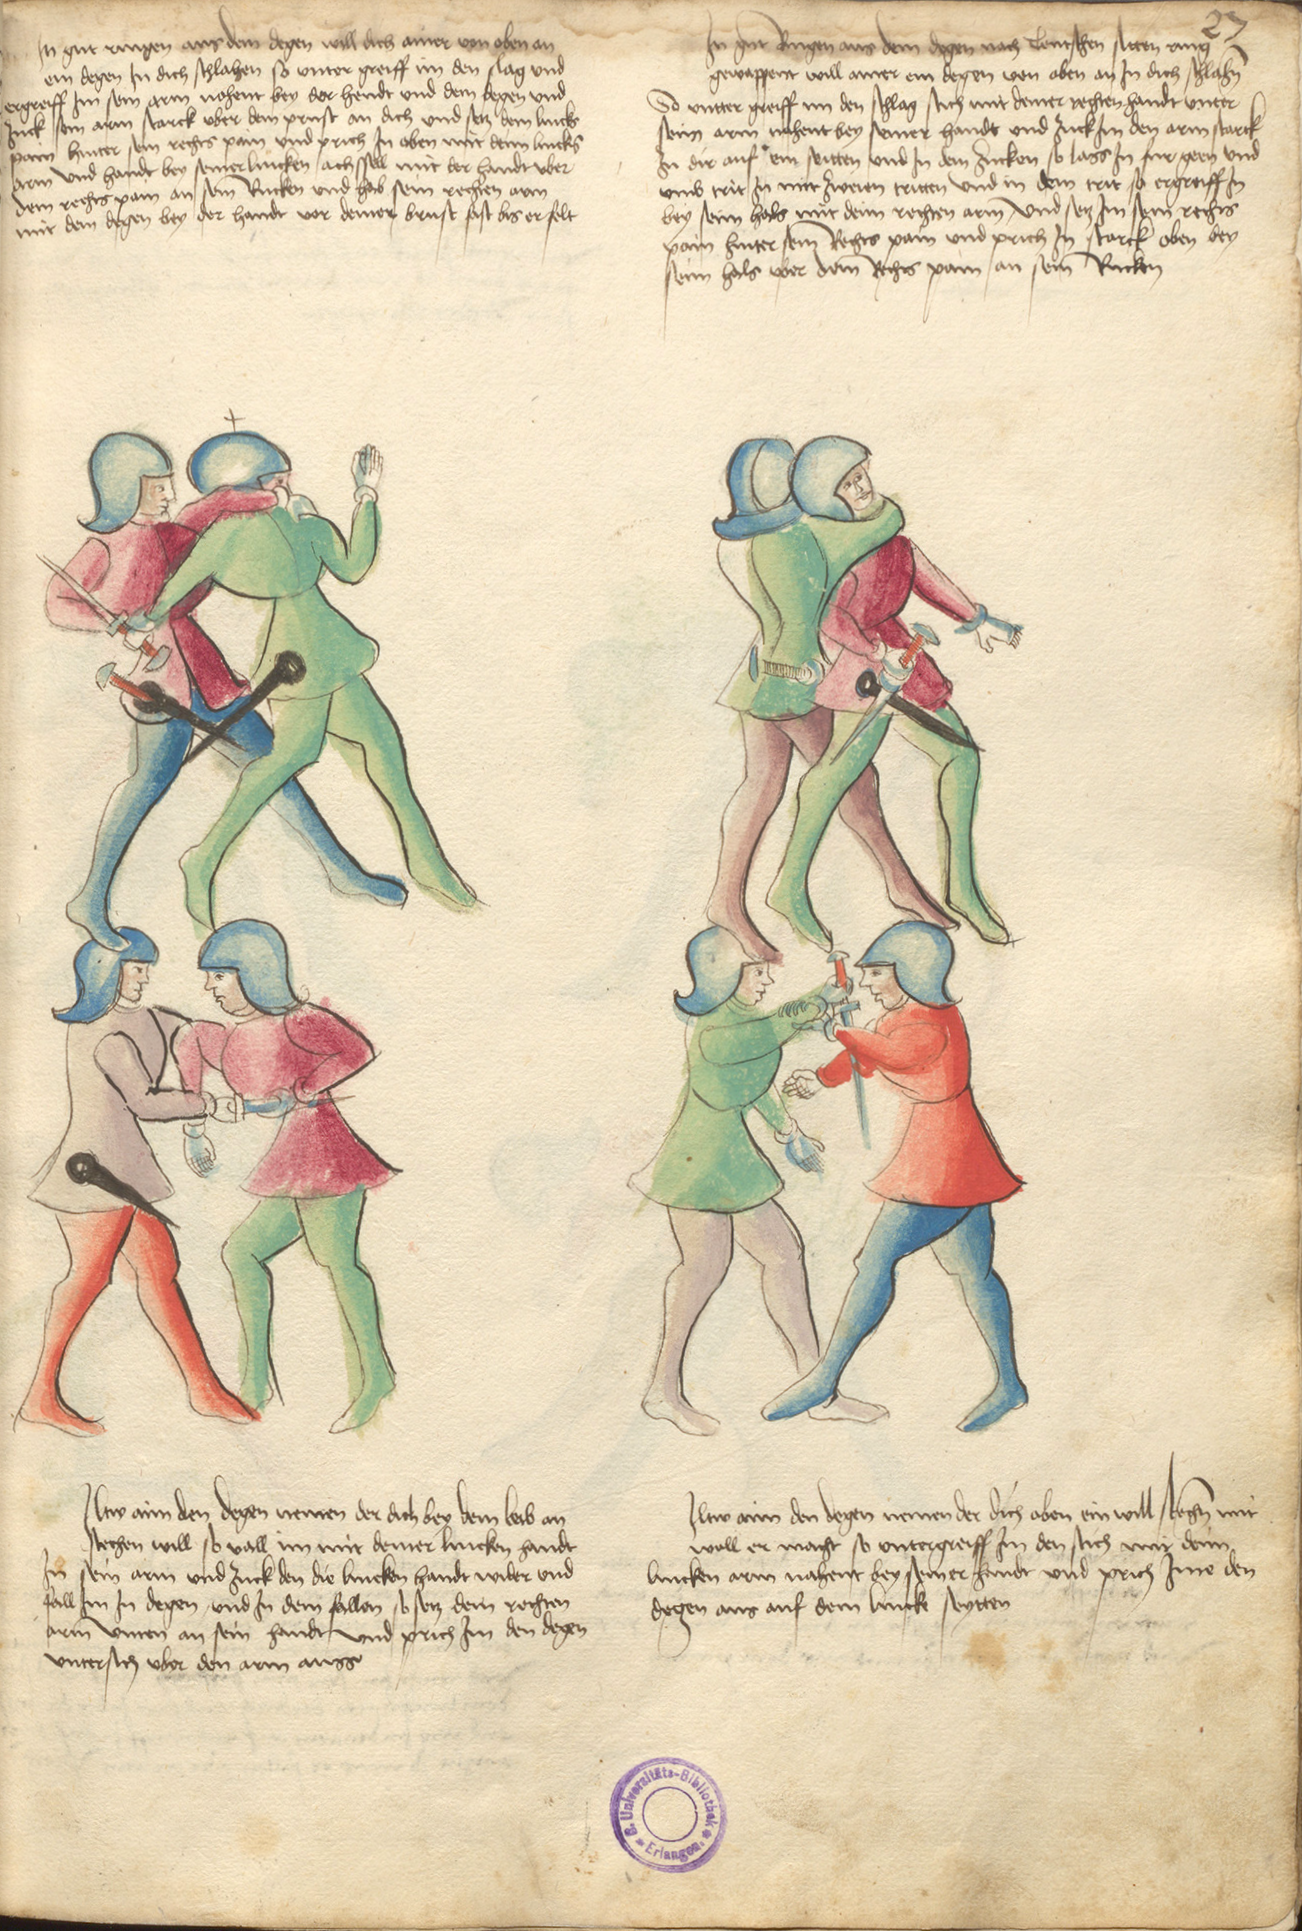 27
In gut ringen aus dem degen will dich ainer von oben an
ein degen In dich schlahen so unter greiff im den slag und
ergreiff Im sein arm nahent bey der hendt und dem degen und
zuck sein arm starck uber dein prust an dich und setz dein lincks
pain hinter sein rechts pain und prich In oben mit deim lincks
arm und handt bey seiner lincken achssell mit der handt uber
dein rechts pain an sein Rucken und hab sein rechten arm
mit dem degen bey der handt vor deiner brust fast bis er felt
In gut Ringen aus dem degen nach teutschen sitten
gewappent will ainer ein degen von oben an In dich schlahn
So untter greiff im den schlag sich mit deiner rechten handt unter
sein arm nahent bey seiner handt und zuck Im den arm starck
zu dir auf ein seitten und In dem zucken so lass In fur geen und
umb trit In mit zweien tritten und in dem trit so ergreiff In
bey seim hals mit deim rechten arm und setz Im sein rechts
pain hinter sein Rechts pain und prich In starck oben bey
seim hals uber dein Rechts pain an sein Rucken
Iltw aim den degen nemen der dich bey dem leib an
stechen will so vall im mit deiner lincken handt
In sein arm und zuck den die lincken handt wider und
fall Im In degen und In dem fallen so setz dein rechten
arm unten an sein handt und prich Im den degen
untersich uber den arm auss
Iltw aim den degen nemen der dich oben ein will stechn mit
woll er macht so untergreiff Im den stich mit deim
lincken arm nahent bey seiner handt und prich Ime den
degen aus auf dein linck seytten
B. Universitäts-Bibliothek
Erlangen